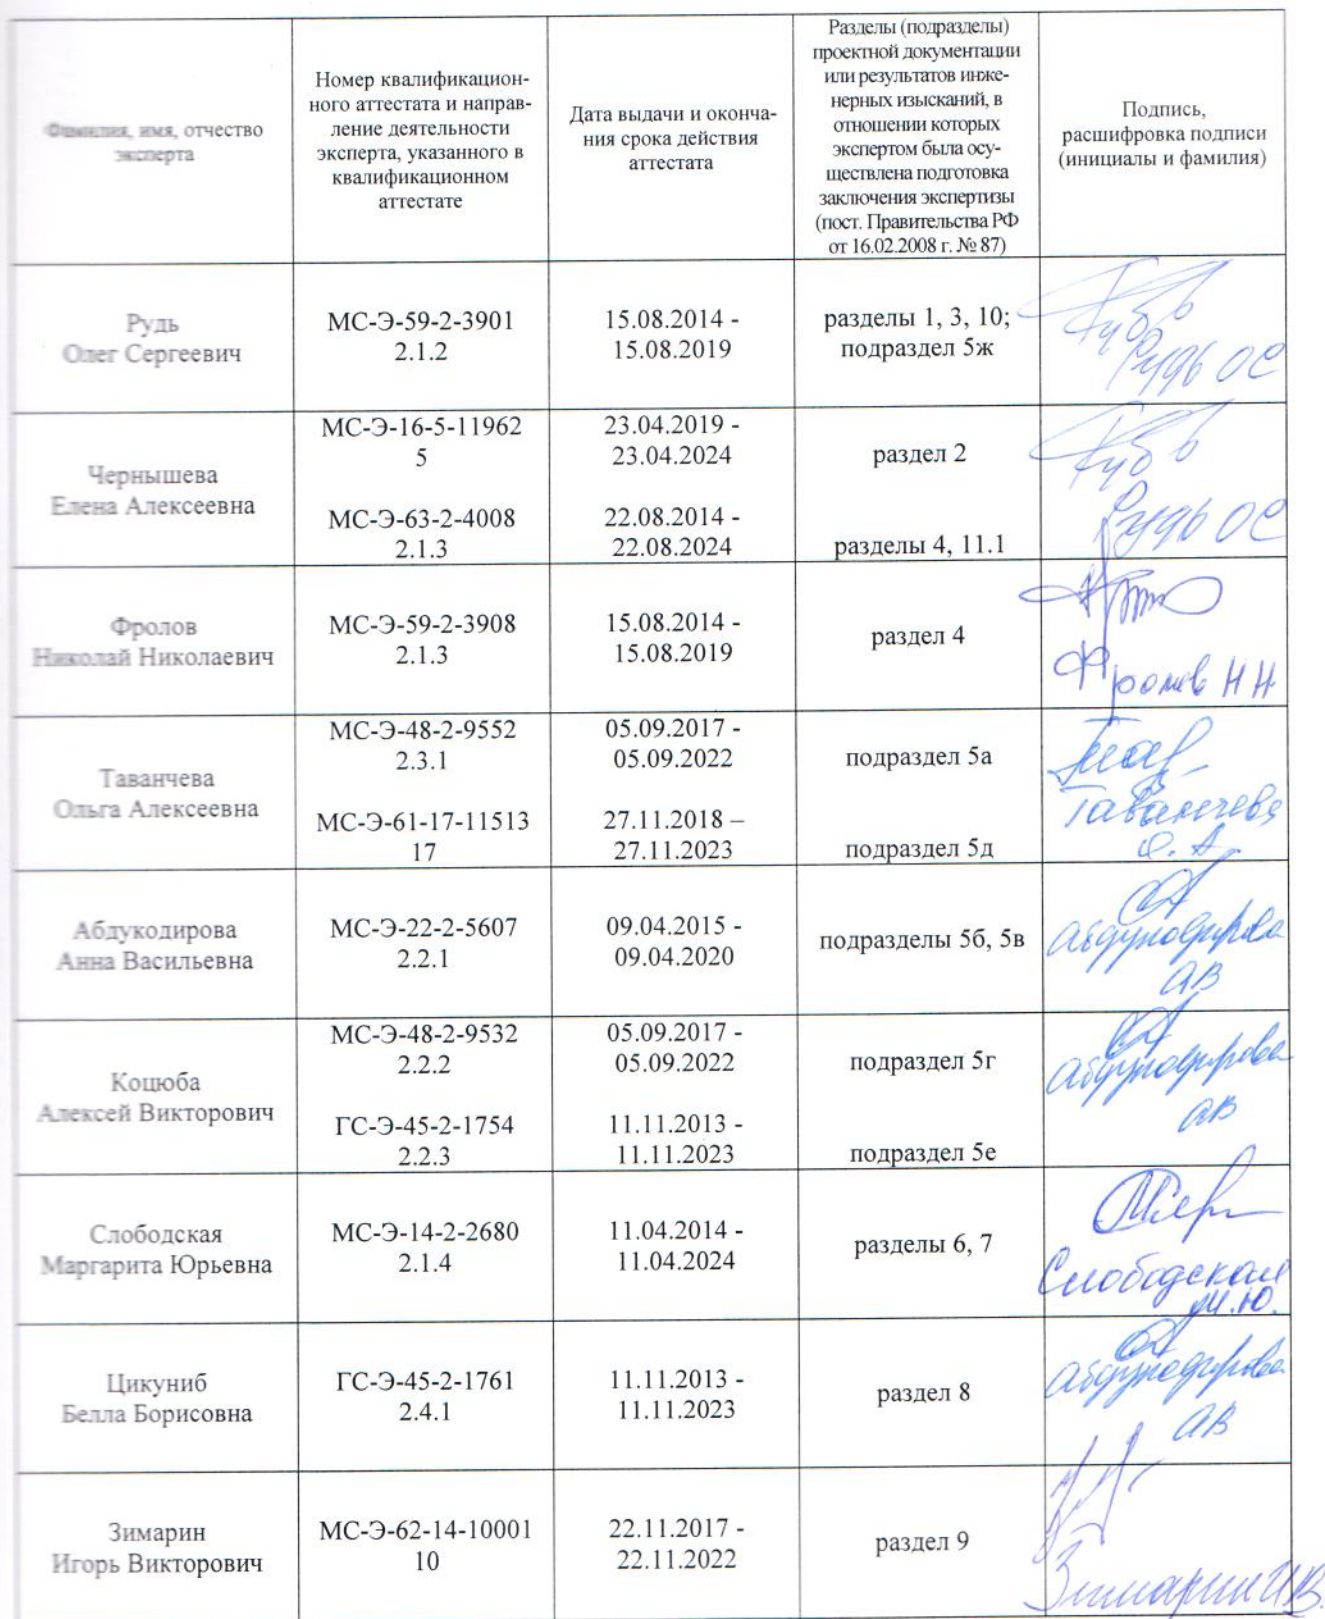 Фамилия, имя, отчество
эксперта
Номер квалификацион-
ного аттестата и направ-
ление деятельности
эксперта, указанного в
квалификационном
аттестате
Дата выдачи и оконча-
ния срока действия
аттестата
Разделы (подразделы)
проектной документации
или результатов инже-
нерных изысканий, в
отношении которых
экспертом была осу-
ществлена подготовка
заключения экспертизы
(пост. Правительства РФ
от 16.02.2008 г. № 87)
Подпись,
расшифровка подписи
(инициалы и фамилия)
Рудь
Олег Сергеевич
МС-Э-59-2-3901
2.1.2
15.08.2014 -
15.08.2019
разделы 1, 3, 10;
подраздел 5ж
Рудь ОС
Чернышева
Елена Алексеевна
МС-Э-16-5-11962
5
МС-Э-63-2-4008
2.1.3
23.04.2019 -
23.04.2024
22.08.2014 -
22.08.2024
раздел 2
разделы 4, 11.1
Рудь ОС
Фролов
Николай Николаевич
МС-Э-59-2-3908
2.1.3
15.08.2014 -
15.08.2019
раздел 4
Фролов Н Н
Таванчева
Ольга Алексеевна
МС-Э-48-2-9552
2.3.1
МС-Э-61-17-11513
17
05.09.2017 -
05.09.2022
27.11.2018 –
27.11.2023
подраздел 5а
подраздел 5д
Таванчева
О. А.
Абдукодирова
Анна Васильевна
МС-Э-22-2-5607
2.2.1
09.04.2015 -
09.04.2020
подразделы 5б, 5в
Абдукодирова
АВ
Коцюба
Алексей Викторович
МС-Э-48-2-9532
2.2.2
ГС-Э-45-2-1754
2.2.3
05.09.2017 -
05.09.2022
11.11.2013 -
11.11.2023
подраздел 5г
подраздел 5е
Абдукодирова
АВ
Слободская
Маргарита Юрьевна
МС-Э-14-2-2680
2.1.4
11.04.2014 -
11.04.2024
разделы 6, 7
Слободская
М.Ю.
Цикуниб
Белла Борисовна
ГС-Э-45-2-1761
2.4.1
11.11.2013 -
11.11.2023
раздел 8
Абдукодирова
АВ
Зимарин
Игорь Викторович
МС-Э-62-14-10001
10
22.11.2017 -
22.11.2022
раздел 9
Зимарин И.В.